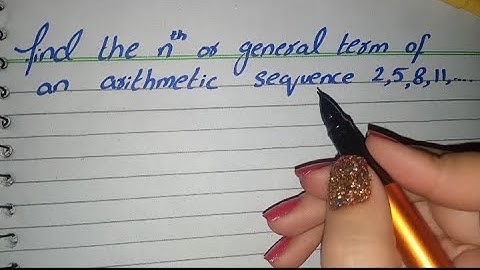 find the nth or general term of
an arithmetic sequence 2,5,8,11,....